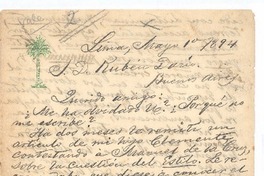 2
Lima, Mayo 1º 1894
S. D. Rubén Darío
Buenos Aires
Querido amigo:
¿Me ha olvidado V.? ¿Porqué no
me escribe?
Ha dos meses le remití un
artículo de mi hijo Clemente
contestando á Marqués de la Cruz,
sobre la cuestión del Estilo, de
que